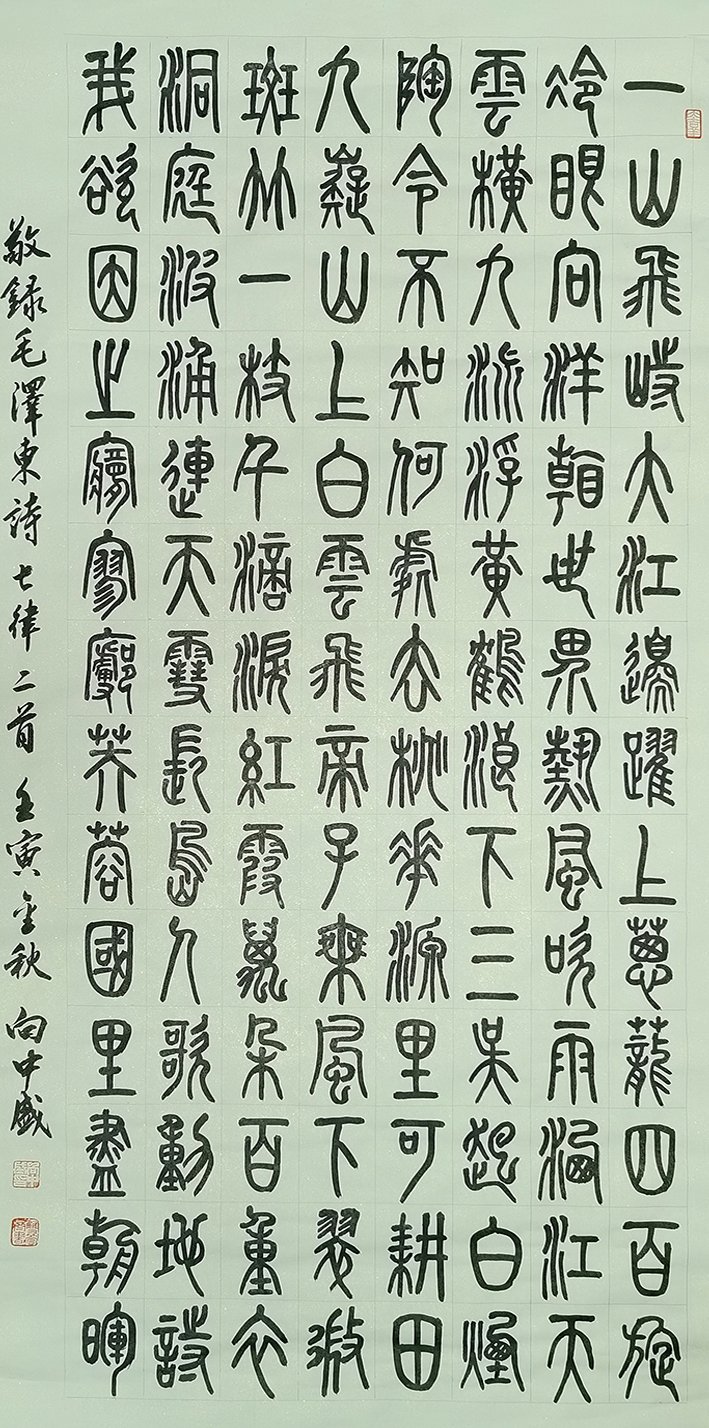 一山飛峙大江邊躍上蔥蘢四百旋
冷眼向洋看世界熱風吹雨洒江天
雲橫九派浮黃鶴浪下三吳起白煙
陶令不知何處去桃花源里可耕田
九嶷山上白雲飛帝子乘風下翠微
斑竹一枝千滴淚紅霞萬朵百重衣
洞庭波涌連天雪長島人歌動地詩
我欲因之夢寥廓芙蓉國里盡朝暉
敬録毛澤東詩七律二首 壬寅金秋 向中盛